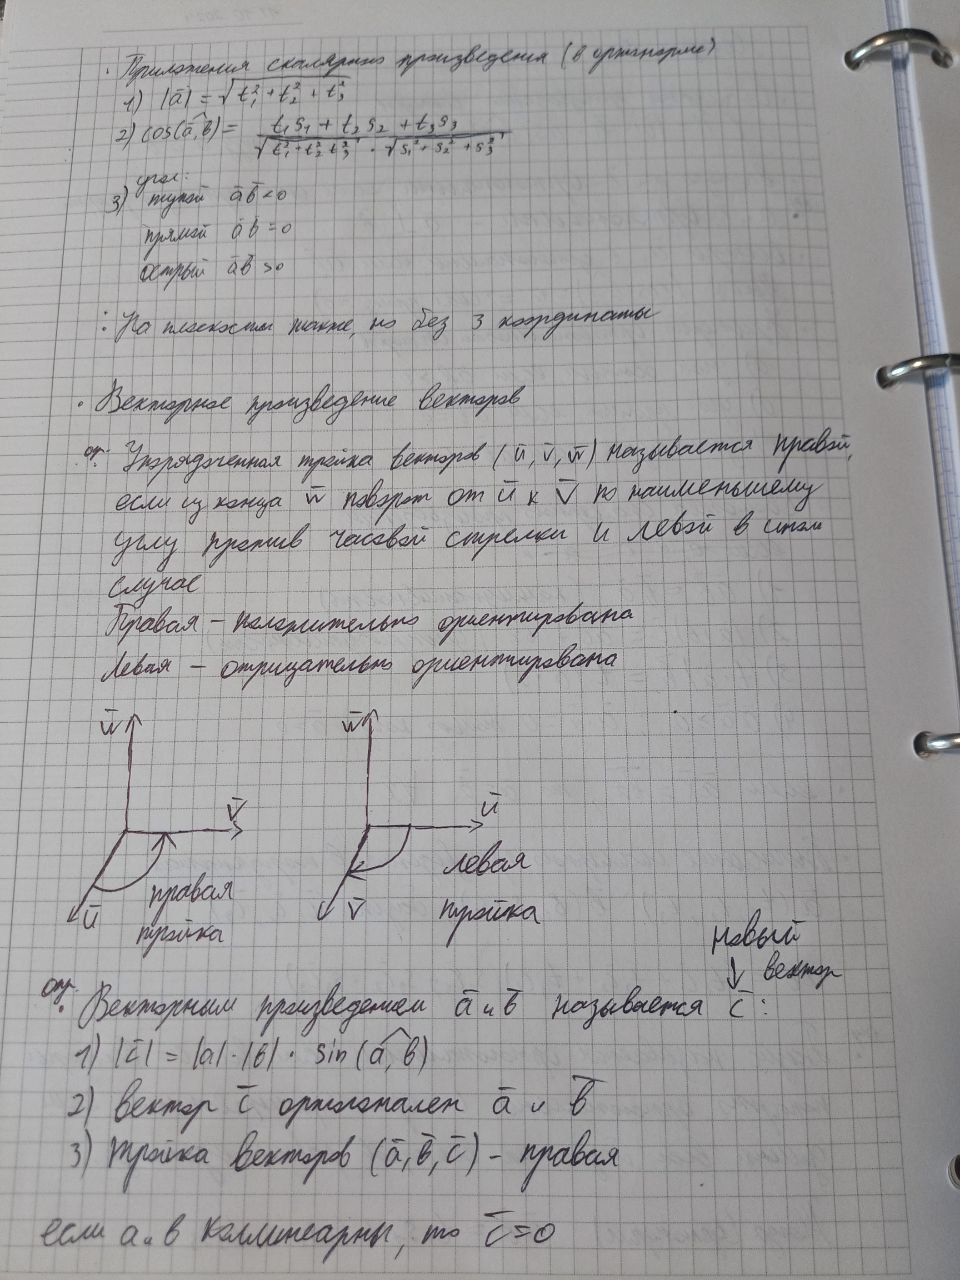 · Приложения скалярного произведения (в ортонорме)
1) |a̅| = √(t₁² + t₂² + t₃²)
2) cos(a̅,^в) = (t₁s₁ + t₂s₂ + t₃s₃) / (√(t₁² + t₂² t₃²) · √(s₁² + s₂² + s₃²))
угол:
3) тупой a̅ в̅ < 0
прямой a̅ в̅ = 0
острый a̅ в̅ > 0
: На плоскости также, но без 3 координаты
· Векторное произведение векторов
опр: Упорядоченная тройка векторов (u̅, v̅, w̅) называется правой,
если из конца w̅ поворот от u̅ к v̅ по наименьшему
углу против часовой стрелки и левой в ином
случае
Правая – положительно ориентирована
Левая – отрицательно ориентирована
w̅ w̅
v̅ u̅
u̅ правая v̅ левая
тройка тройка
новый
↓ вектор
опр: Векторным произведением a̅ и в̅ называется c̅ :
1) |c̅| = |a| · |в| · sin (a̅,^в)
2) вектор c̅ ортогонален a̅ и в̅
3) тройка векторов (a̅, в̅, c̅) – правая
если a и в коллинеарны, то c̅ = 0